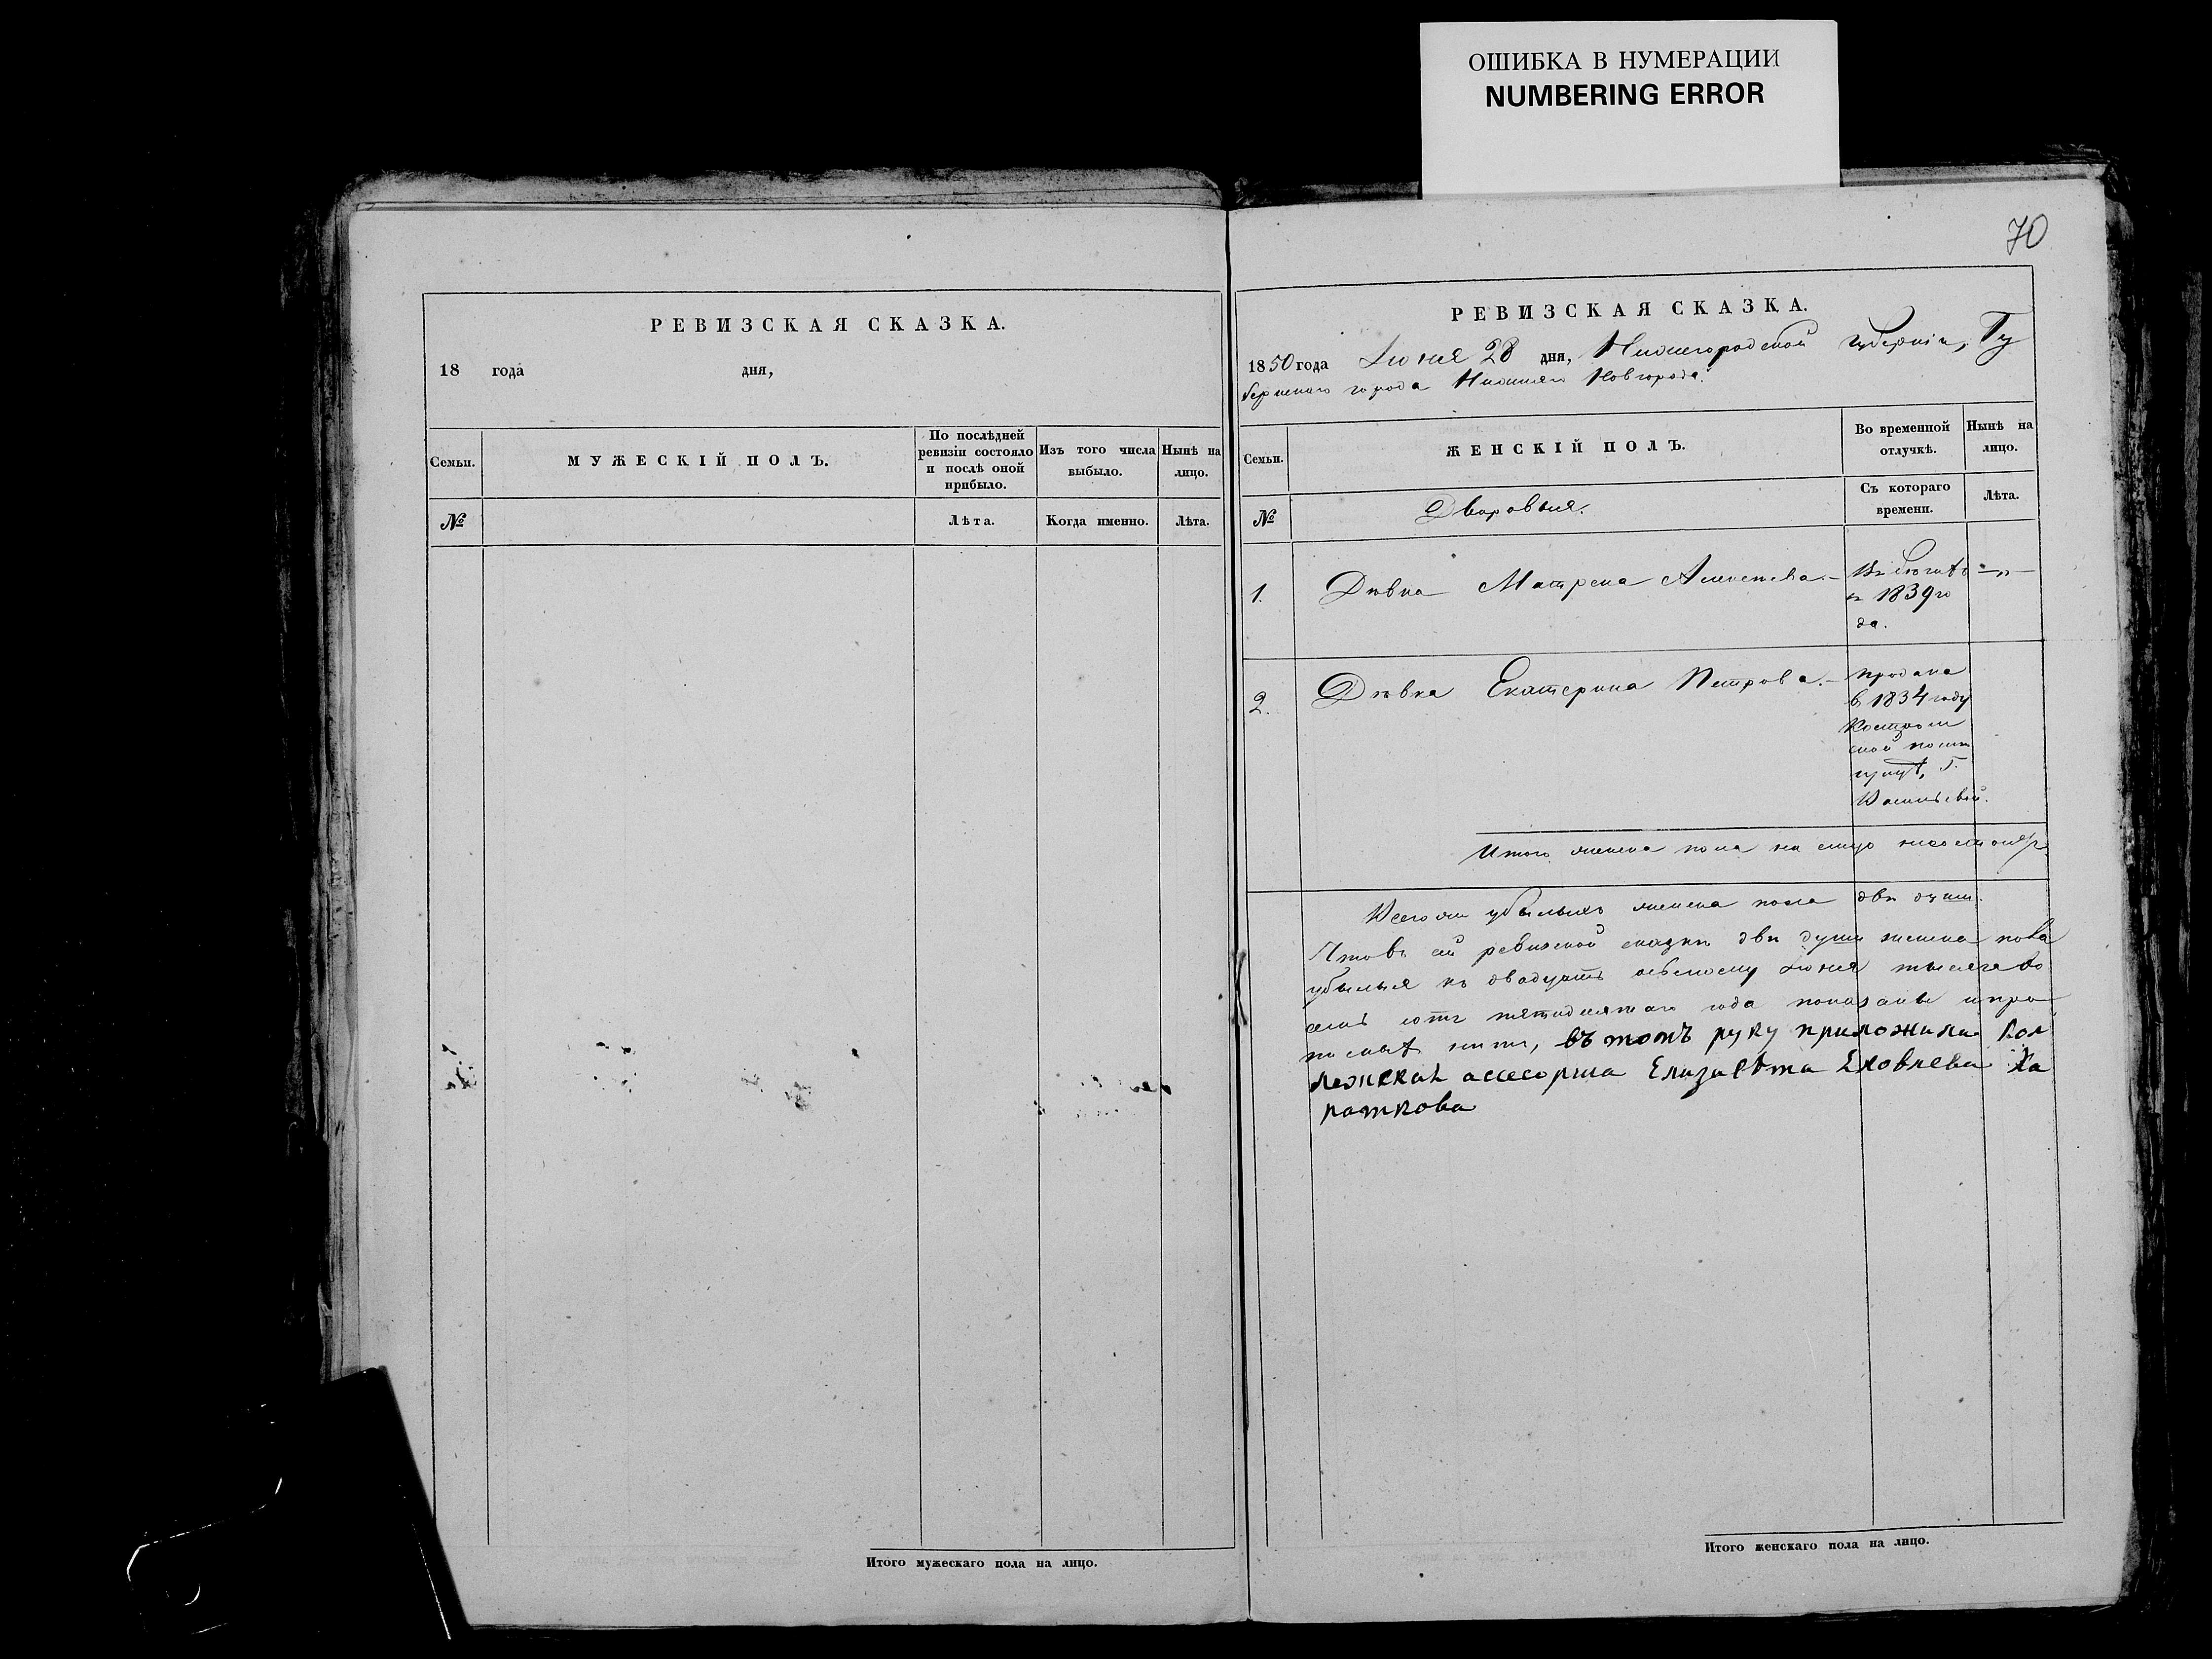 ОШИБКА В НУМЕРАЦИИ
NUMBERING ERROR
70
РЕВИЗСКАЯ СКАЗКА.
18 года дня,
Семьи.
МУЖЕСКІЙ ПОЛЪ.
По послѣдней ревизіи состояло и послѣ оной прибыло.
Изъ того числа выбыло.
Нынѣ на лицо.
№
Лѣта.
Когда именно.
Лѣта.
Итого мужескаго пола на лицо.
РЕВИЗСКАЯ СКАЗКА.
1850 года Июня 28 дня, Нижегородской Губерніи, Гу
бернскаго города Нижняго Новгорода.
Семьи.
ЖЕНСКІЙ ПОЛЪ.
Во временной отлучкѣ.
Нынѣ на лицо.
№
Дворовыя.
Съ котораго времени.
Лѣта.
1. Дѣвка Матрена
1839 го
да.
2. Дѣвка Екатерина Петрова.
продана
в 1834 году
Итого женска пола на лицо
убылыхъ женска пола двѣ души.
ревизской сказки двѣ души женска пола
убылыя къ двадцать осьмому июня тысяча во
года показаны и про
въ томъ руку приложила Кол
лежская асесорша Елизавѣта Яковлева Ха
раткова
Итого женскаго пола на лицо.